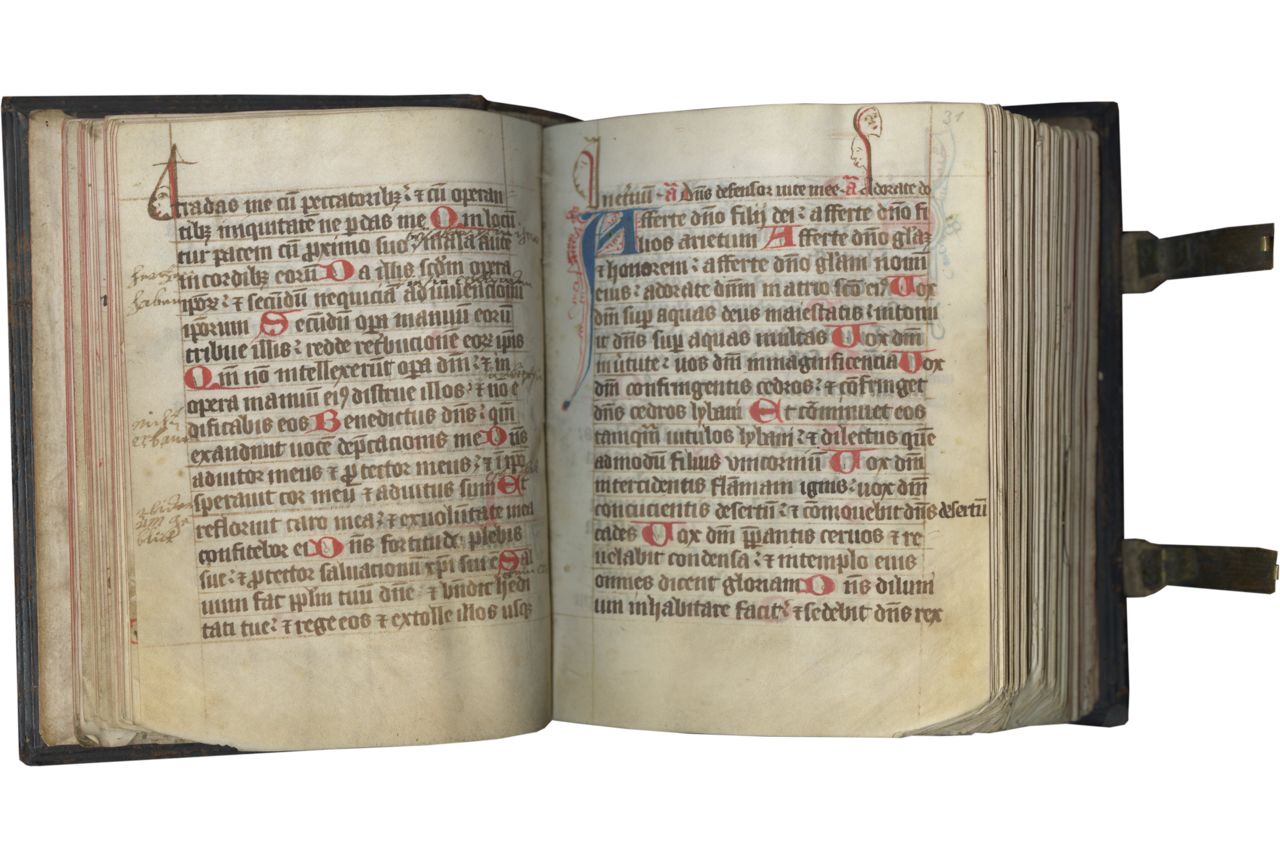 tradas me cū peccatoribꝫ ⁊ cū operan
tibꝫ iniquitatē ne ꝑdas me Qui locū
tur pacem cū ꝓximo suo mala aute
in cordibꝫ eorū Da illis scdm opera
ipoꝝ ⁊ secūdū nequiciā ad inuencionū
ipsorum Secūdū opa manuū eorū
tribue illis redde ret'bucionē eoꝝ ipis
Qm nō intellexerūt opa dm̄ ⁊ in
opera manuū eiꝰ distrue illos ⁊ nō e
dificabis eos Benedictus dn̄s qm̄
exaudiuit uocē dep̄cacionis mee Dn̄s
adiutor meus ⁊ ꝓtector meus ⁊ in ipō
sperauit cor meū ⁊ adiutus sum Et
refloruit caro mea ⁊ ex uolūtate mea
confitebor ei Dn̄s fortitudo plebis
sue ⁊ ꝓtector saluacionū xp̄i sui ē Sal
uum fac pplm tuū dn̄e ⁊ bn̄dic hedi
tati tue ⁊ rege eos ⁊ extolle illos usqꝫ
31
In etnū a Dn̄s defensor uite mee a Adorate do
Afferte dn̄o filij dei afferte dn̄o fi
lios arietum Afferte dn̄o glaꝫ
⁊ honorem afferte dn̄o glām nomī
eius adorate dn̄m in atrio scō eiꝰ Uox
dn̄i sup aquas deus maiestatis intonu
it dn̄s sup aquas multas Uox dn̄i
in uirtute uox dn̄i in magnificencia Uox
dn̄i confringentis cedros ⁊ cōfringet
dn̄s cedros lybani Et cōminuet eos
tamqm̄ uitulos lybani ⁊ dilectus quē
admodū filius unicornuū Uox dn̄i
intercidentis flāmam ignis uox dn̄i
concucientis desertū ⁊ cōmouebit dn̄s desertū
cades Uox dn̄i p̄parantis ceruos ⁊ re
uelabit condensa ⁊ in templo eius
omnes dicent gloriam Dn̄s diluui
um inhabitare facit ⁊ sedebit dn̄s rex